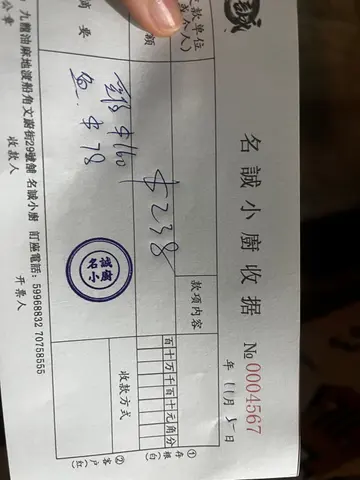 誠
名誠小廚收据
№ 0004567
年 11月 5日
款單位
款項內容
額
百十万千百十元角分
摘要
$160
魚: $78
$238
收款方式
誠廚
名小
①存根(白)
②客户(红)
九龍油麻地渡船角文蔚街29號舖 名誠小廚 訂座電話: 59968832 70758555
公章
收款人
开票人